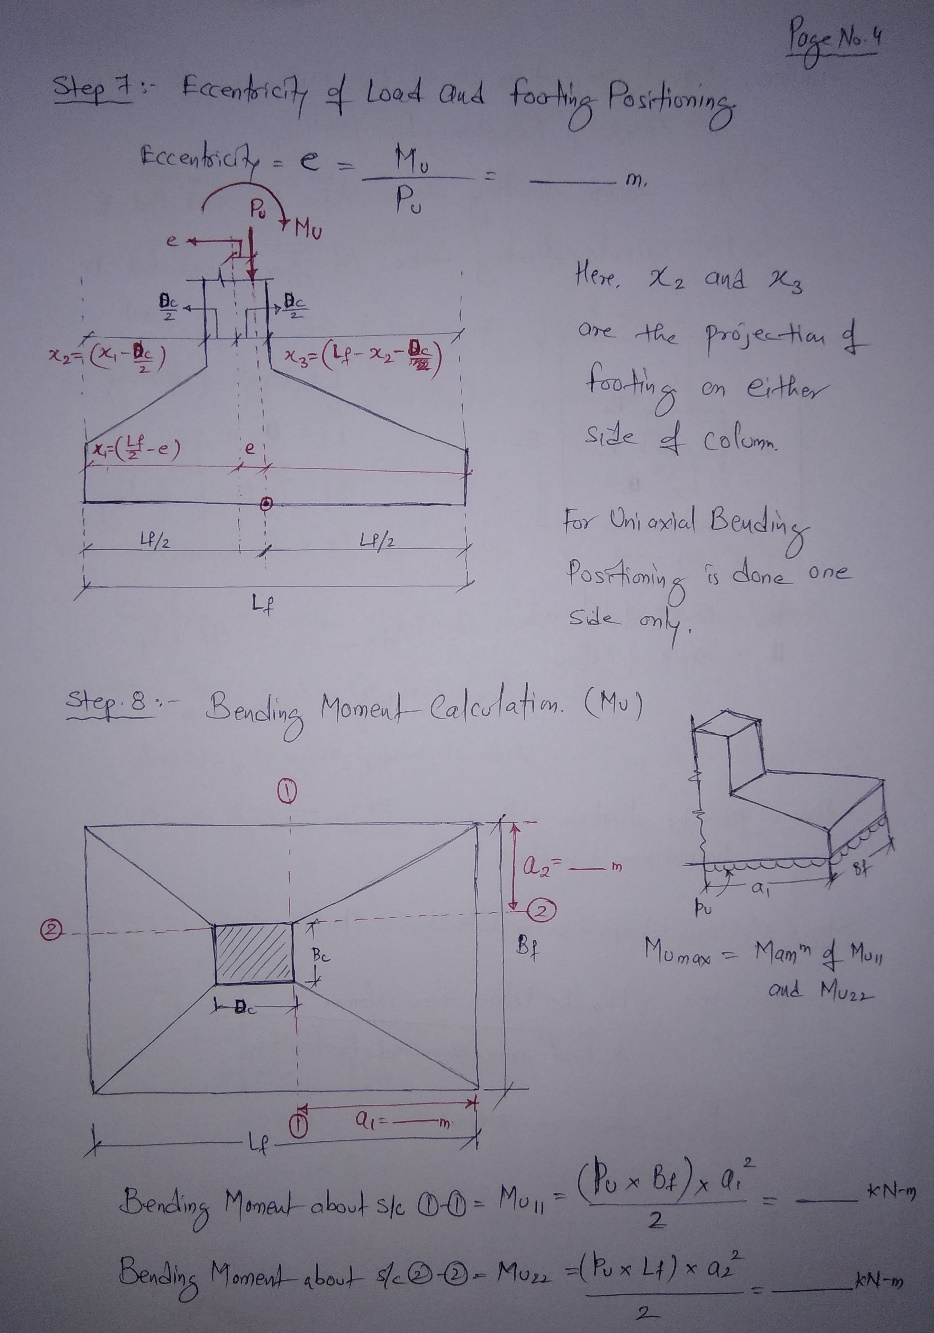 Page No. 4
Step 7:- Eccentricity of Load and footing Positioning
Eccentricity = e = Mu / Pu = ____ m.
Pu
Mu
e
Dc/2
Dc/2
x2=(x1-Dc/2)
x3=(Lf-x2-Dc)
x1=(Lf/2-e)
e
Lf/2
Lf/2
Lf
Here, x2 and x3
are the projection of
footing on either
side of column.
For Uniaxial Bending
Positioning is done one
side only.
Step. 8:- Bending Moment Calculation. (Mu)
1
a2=____m
2
2
Bc
Bf
Dc
1
a1=____m.
Lf
Pu
a1
Bf
Mumax = Mamm of Mu11
and Mu22
Bending Moment about s/c 1-1 = Mu11 = (Pu x Bf) x a1² / 2 = ____ kN-m
Bending Moment about s/c 2-2 = Mu22 = (Pu x Lf) x a2² / 2 = ____ kN-m